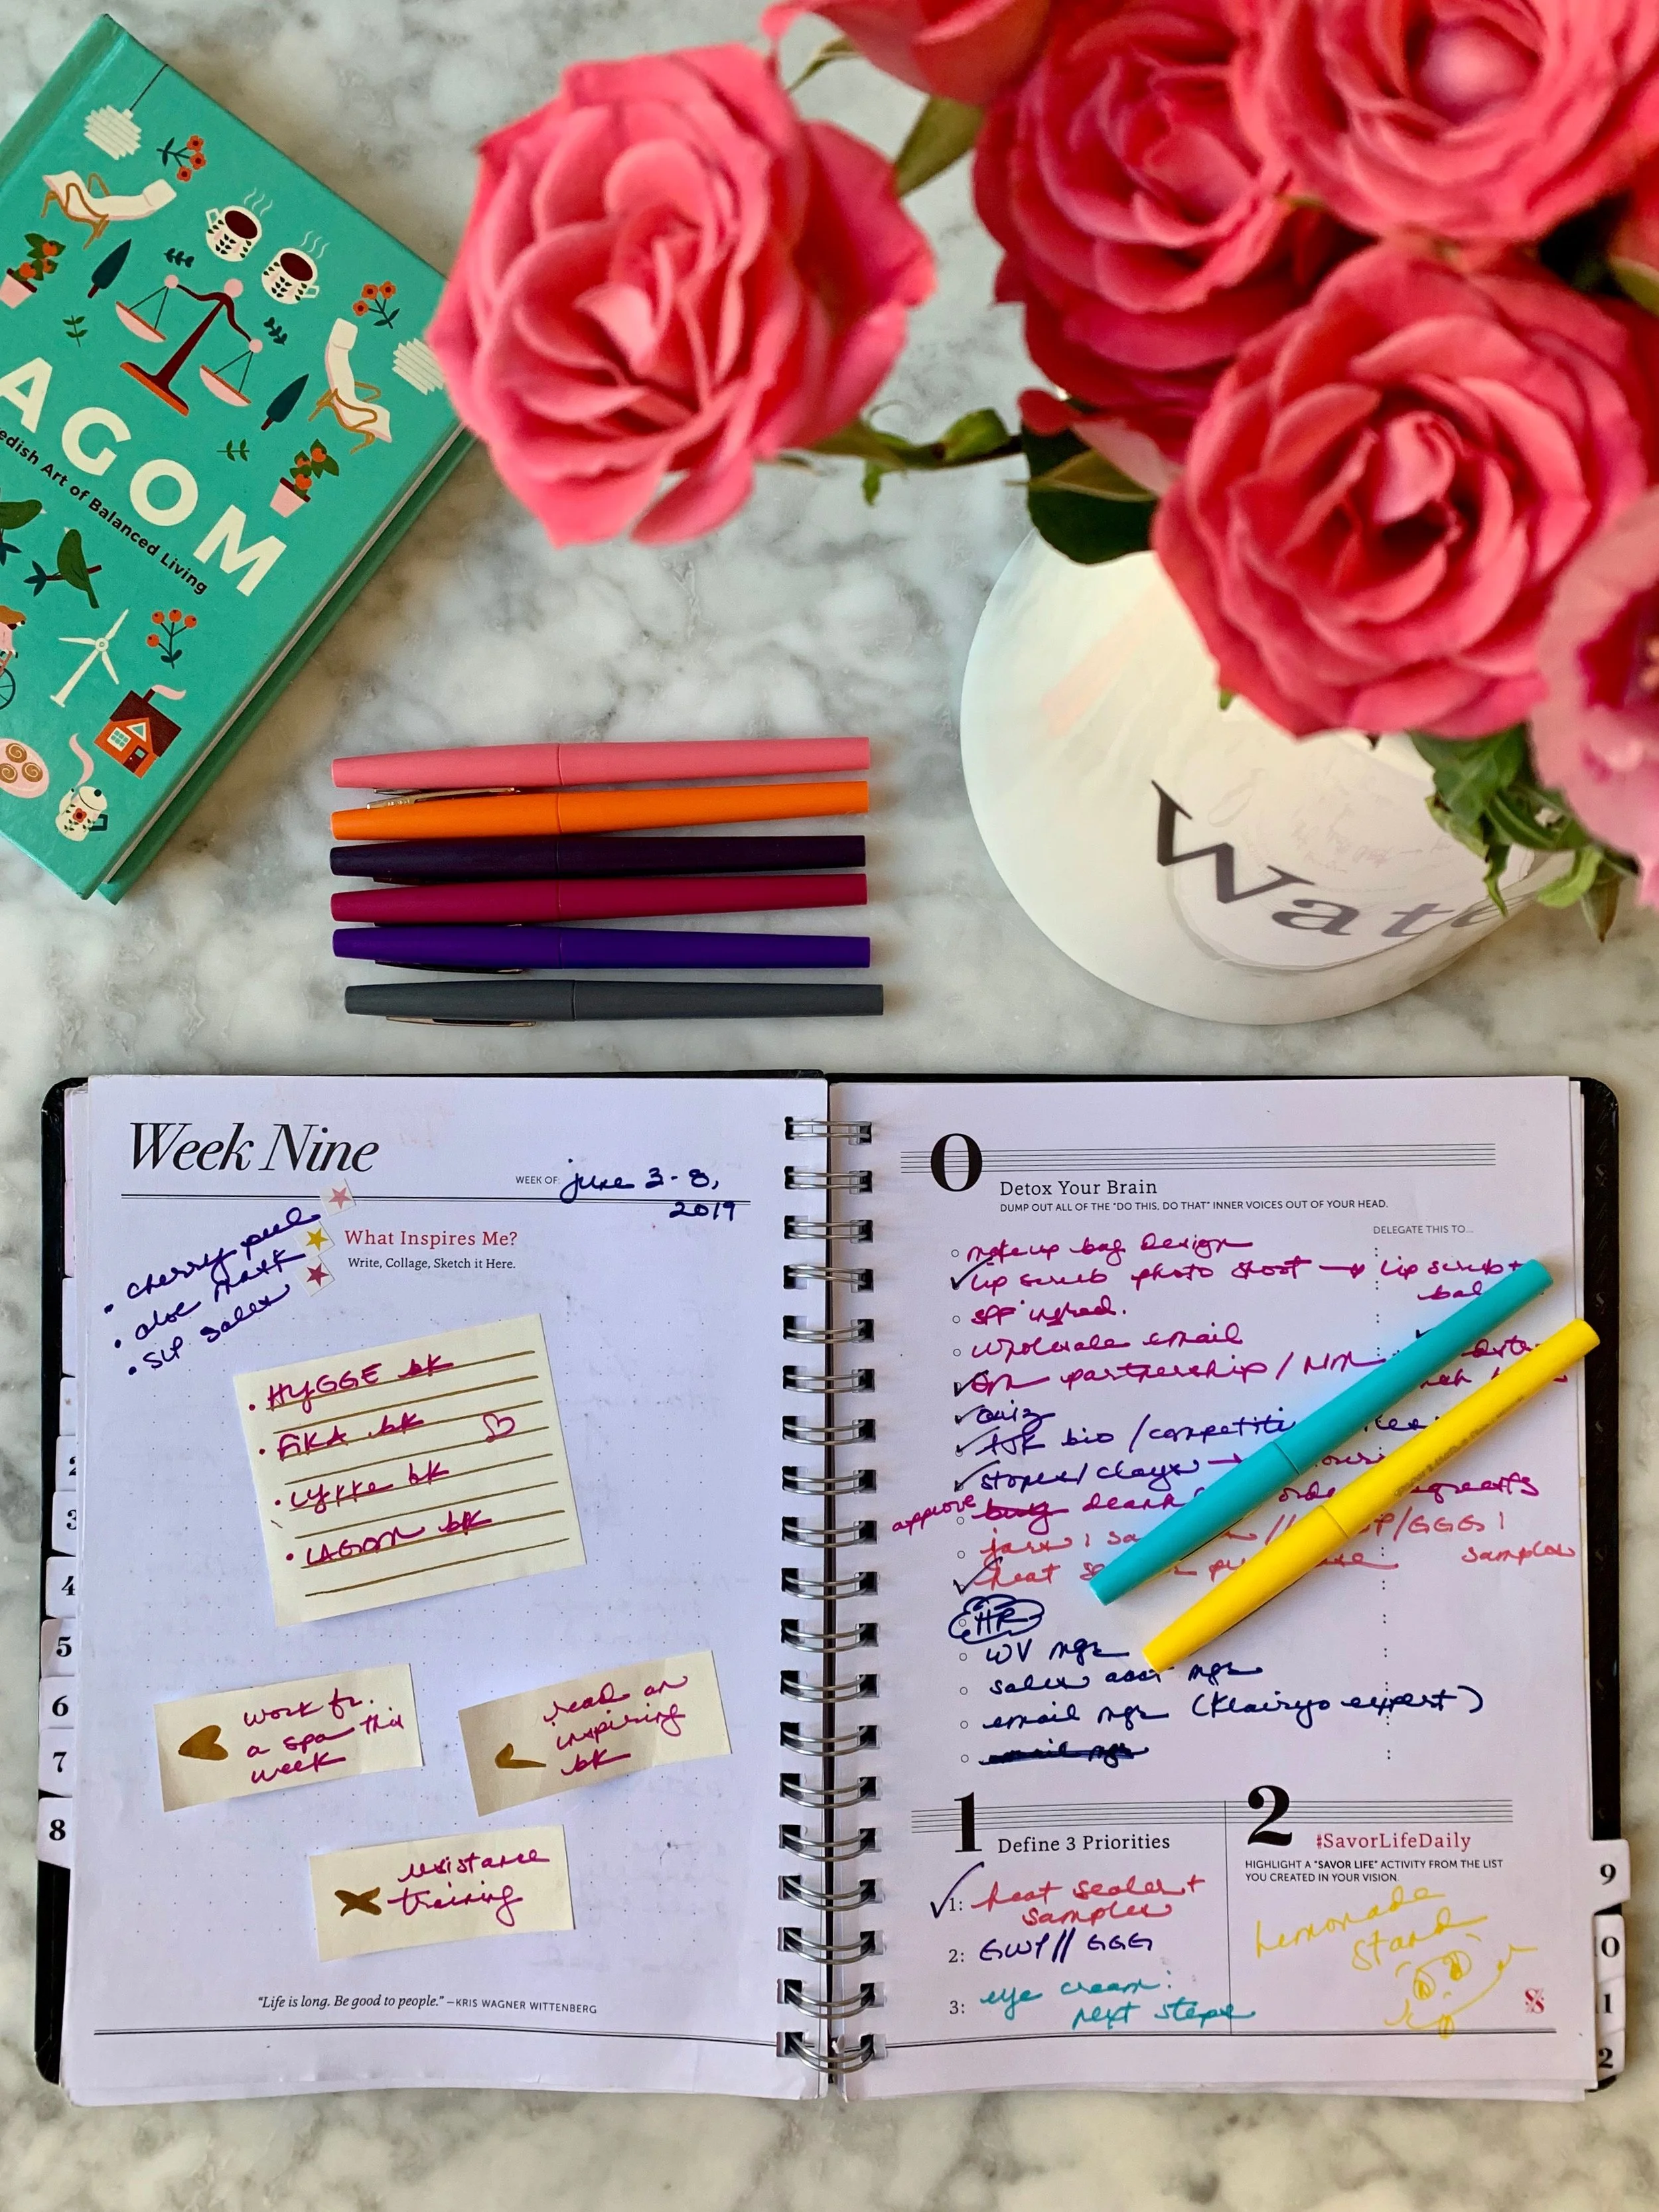 AGOM
edish Art of Balanced Living
Wate
Week Nine
WEEK OF: june 3-8,
2019
• cherry peel
• aloe mask
• SLP sales
What Inspires Me?
Write, Collage, Sketch it Here.
• HYGGE bk
• FIKA bk
• Lykke bk
• LAGOM bk
work fr.
a spa this
week
read an
inspiring
bk
resistance
training
"Life is long. Be good to people." —KRIS WAGNER WITTENBERG
2
3
4
5
6
7
8
0
Detox Your Brain
DUMP OUT ALL OF THE "DO THIS, DO THAT" INNER VOICES OUT OF YOUR HEAD.
DELEGATE THIS TO...
makeup bag design
lip scrub photo shoot → lip scrub +
bal
SPF ingred.
wholesale email
partnership / NM
quiz
TSK bio / competiti
stopers/clays →
approve buy deank orde
jars: sa // P/GGG:
heat se samples
HR
WV mgr
sales asst mgr
email mgr (Klaviyo expert)
email mgr
1
Define 3 Priorities
1: heat sealer +
samples
2: GWP // GGG
3: eye cream:
next steps
2
#SavorLifeDaily
HIGHLIGHT A "SAVOR LIFE" ACTIVITY FROM THE LIST
YOU CREATED IN YOUR VISION.
Lemonade
Stand
9
0
1
2